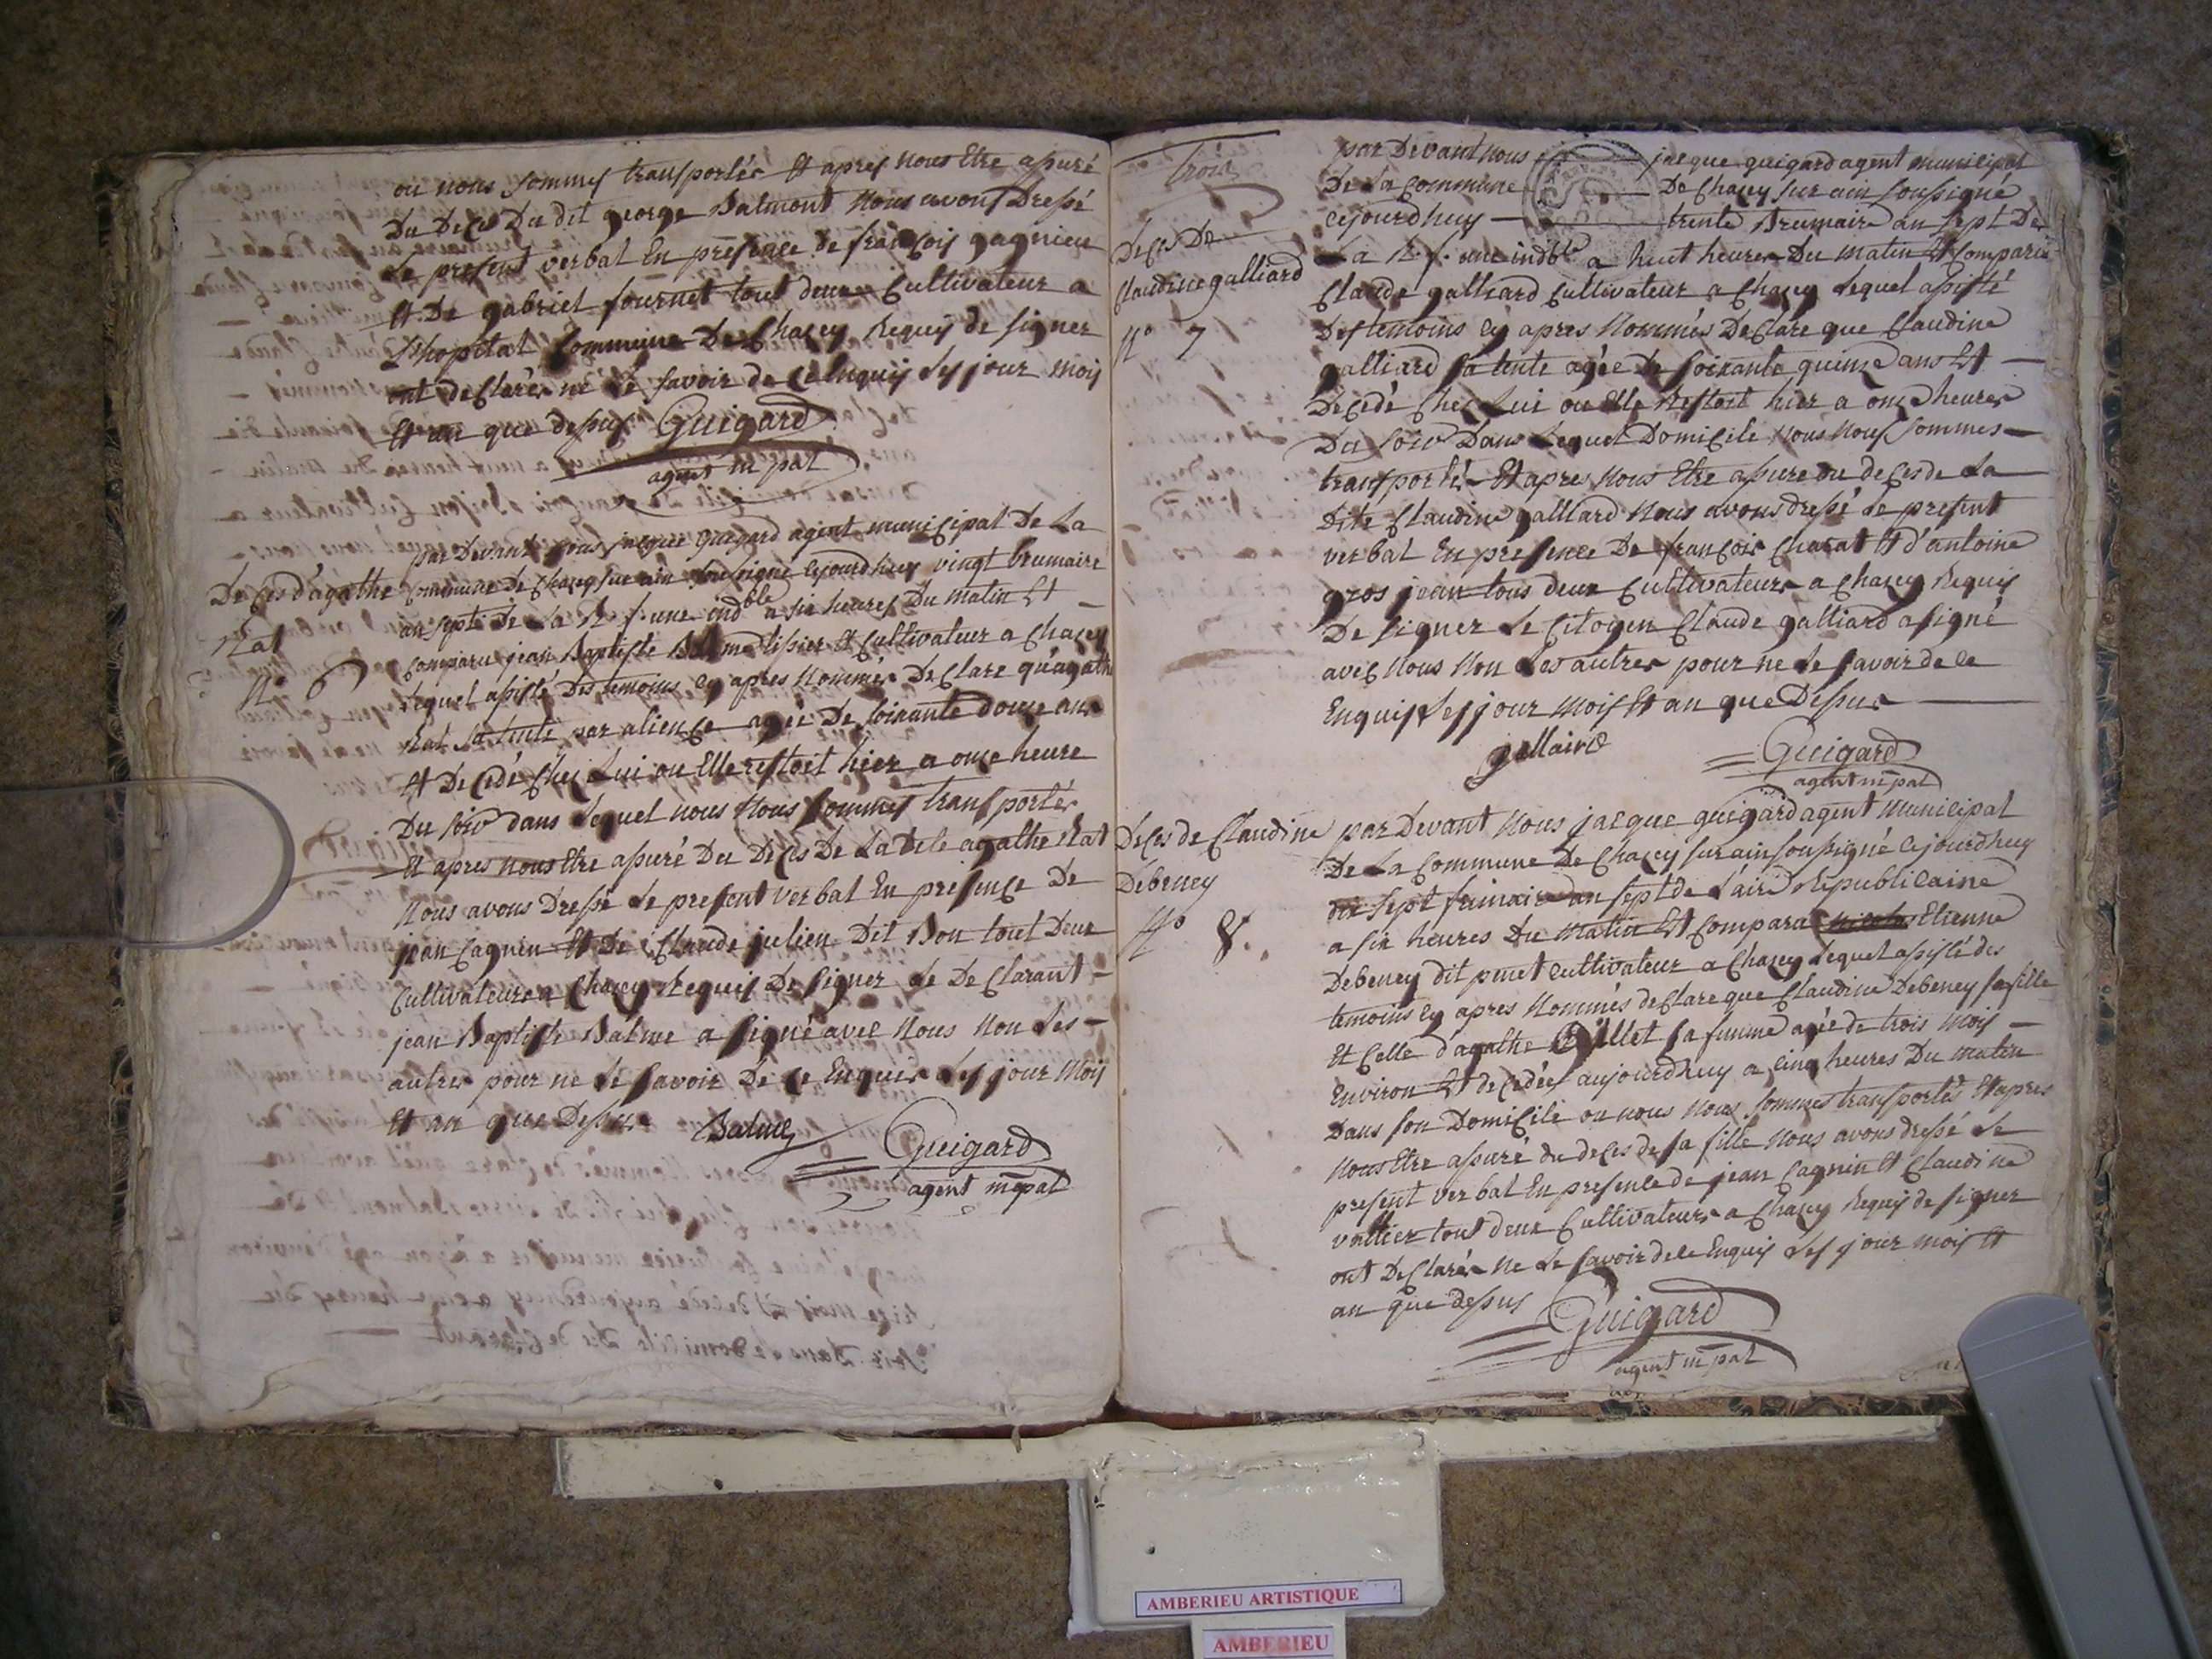 ou nous sommes transportés Et apres nous Etre assuré
du Deces Du dit george Balmont nous avons Dressé
le present verbal En presence de françois gagnieu
Et De gabriel fournet tout deux Cultivateur a
L'hopital Commune De Chasey Requis de signer
ont declarés ne le savoir de ce Enquis les jour mois
Et an que dessus Guigard
agent m̄pal
De Ces d'agathe
Rat
N° 6
par Devant Nous jacque guigard agent municipal De La
Commune De Chasey sur ain soussigné cejourdhuy vingt brumaire
an sept de La R. f. une indble a six heures Du matin Et
Comparu jean Baptiste Balme tissier Et Cultivateur a Chasey
Lequel assisté Des temoins cy apres Nommés Declare qu'agathe
Rat sa tante par alience agée De soixante douze ans
Et De Cedé Chez Lui ou Elle restoit hier a onze heure
Du soir dans Lequel nous Nous sommes transportés
Et apres nous Etre assuré Du Deces De La dite agathe Rat
Nous avons Dressé le present verbal En presence De
jean Cagnin Et De Claude julien Dit Bon tout Deux
Cultivateurs a Chasey Requis De signer le De Clarant
jean Baptiste Balme a signé avec Nous Non Les
autres pour ne le savoir De ce Enquis Les jour Mois
Et an que Dessus Balme Guigard
agent m̄pal
trois
Deces De
Claudine galliard
N° 7
par Devant nous jacque guigard agent municipal
De La Commune De Chasey sur ain soussigné
cejourdhuy trente Brumaire an sept De
La R. f. une indble a huit heures Du matin Et Comparu
Claude galliard Cultivateur a Chasey Lequel assisté
Des temoins cy apres Nommés DeClare que Claudine
galliard sa tente agée de soixante quinze ans Et
DeCedé Chez Lui ou Elle Restoit hier a onze heures
Du soir Dans Lequel DomiCile Nous Nous sommes
transportés Et apres Nous Etre assure du deces de La
Dite Claudine galliard Nous avons dressé le present
verbal En presence De françois Charat Et d'antoine
gros jean tous deux Cultivateurs a Chasey Requis
De signer Le Citoyen Claude galliard a signé
avec Nous Non Les autres pour ne le savoir de ce
Enquis Les jour Mois Et an que Dessus
gallaird Guigard
agent m̄pal
Deces de Claudine
Debeney
N° 8.
par Devant Nous jacque guigard agent municipal
De La Commune De Chasey sur ain soussigné cejourdhuy
dix sept frimaire an sept de L'aire Republicaine
a six heures Du matin Et Comparu Etienne
Debeney dit pinet Cultivateur a Chasey Lequel assisté des
temoins cy apres Nommés declare que Claudine Debeney sa fille
Et Celle d'agathe sa femme agée de trois Mois
Environ Et decedée aujourdhuy a Cinq heures Du matin
Dans son DomiCile ou nous Nous sommes transportés Et apres
Nous Etre assuré du deces de sa fille Nous avons dressé le
present verbal En presence de jean Cagnin Et Claudine
vollier tout deux Cultivateurs a Chasey Requis de signer
ont DeClarés Ne le savoir de ce Enquis Les jour mois Et
an que dessus Guigard
agent m̄pal
AMBERIEU ARTISTIQUE
AMBERIEU